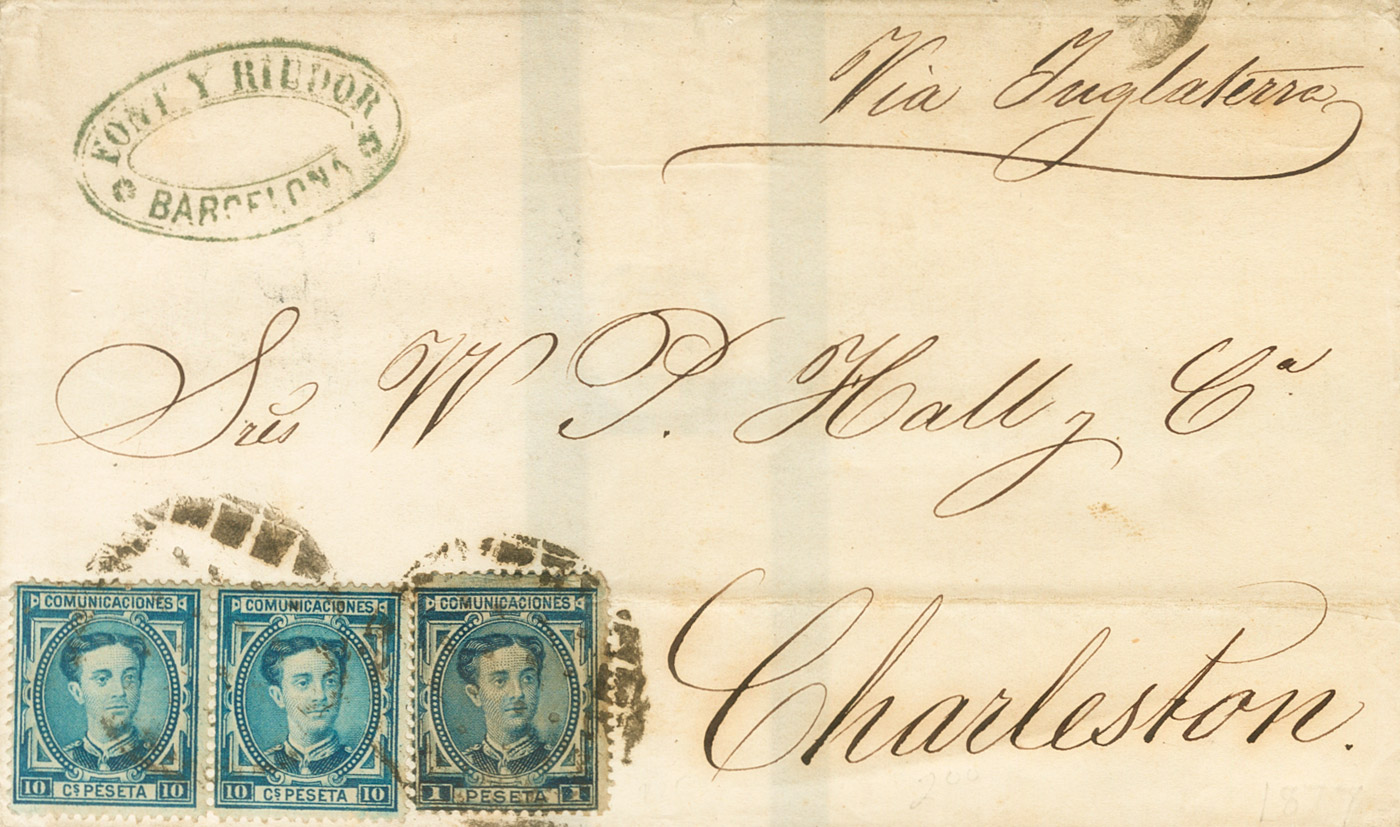 FONT Y RIUDOR
BARCELONA
Via Inglaterra
Sres W P. Hall y Cª
Charleston.
COMUNICACIONES
10 Cs PESETA 10
COMUNICACIONES
10 Cs PESETA 10
COMUNICACIONES
1 PESETA 1
200
1877